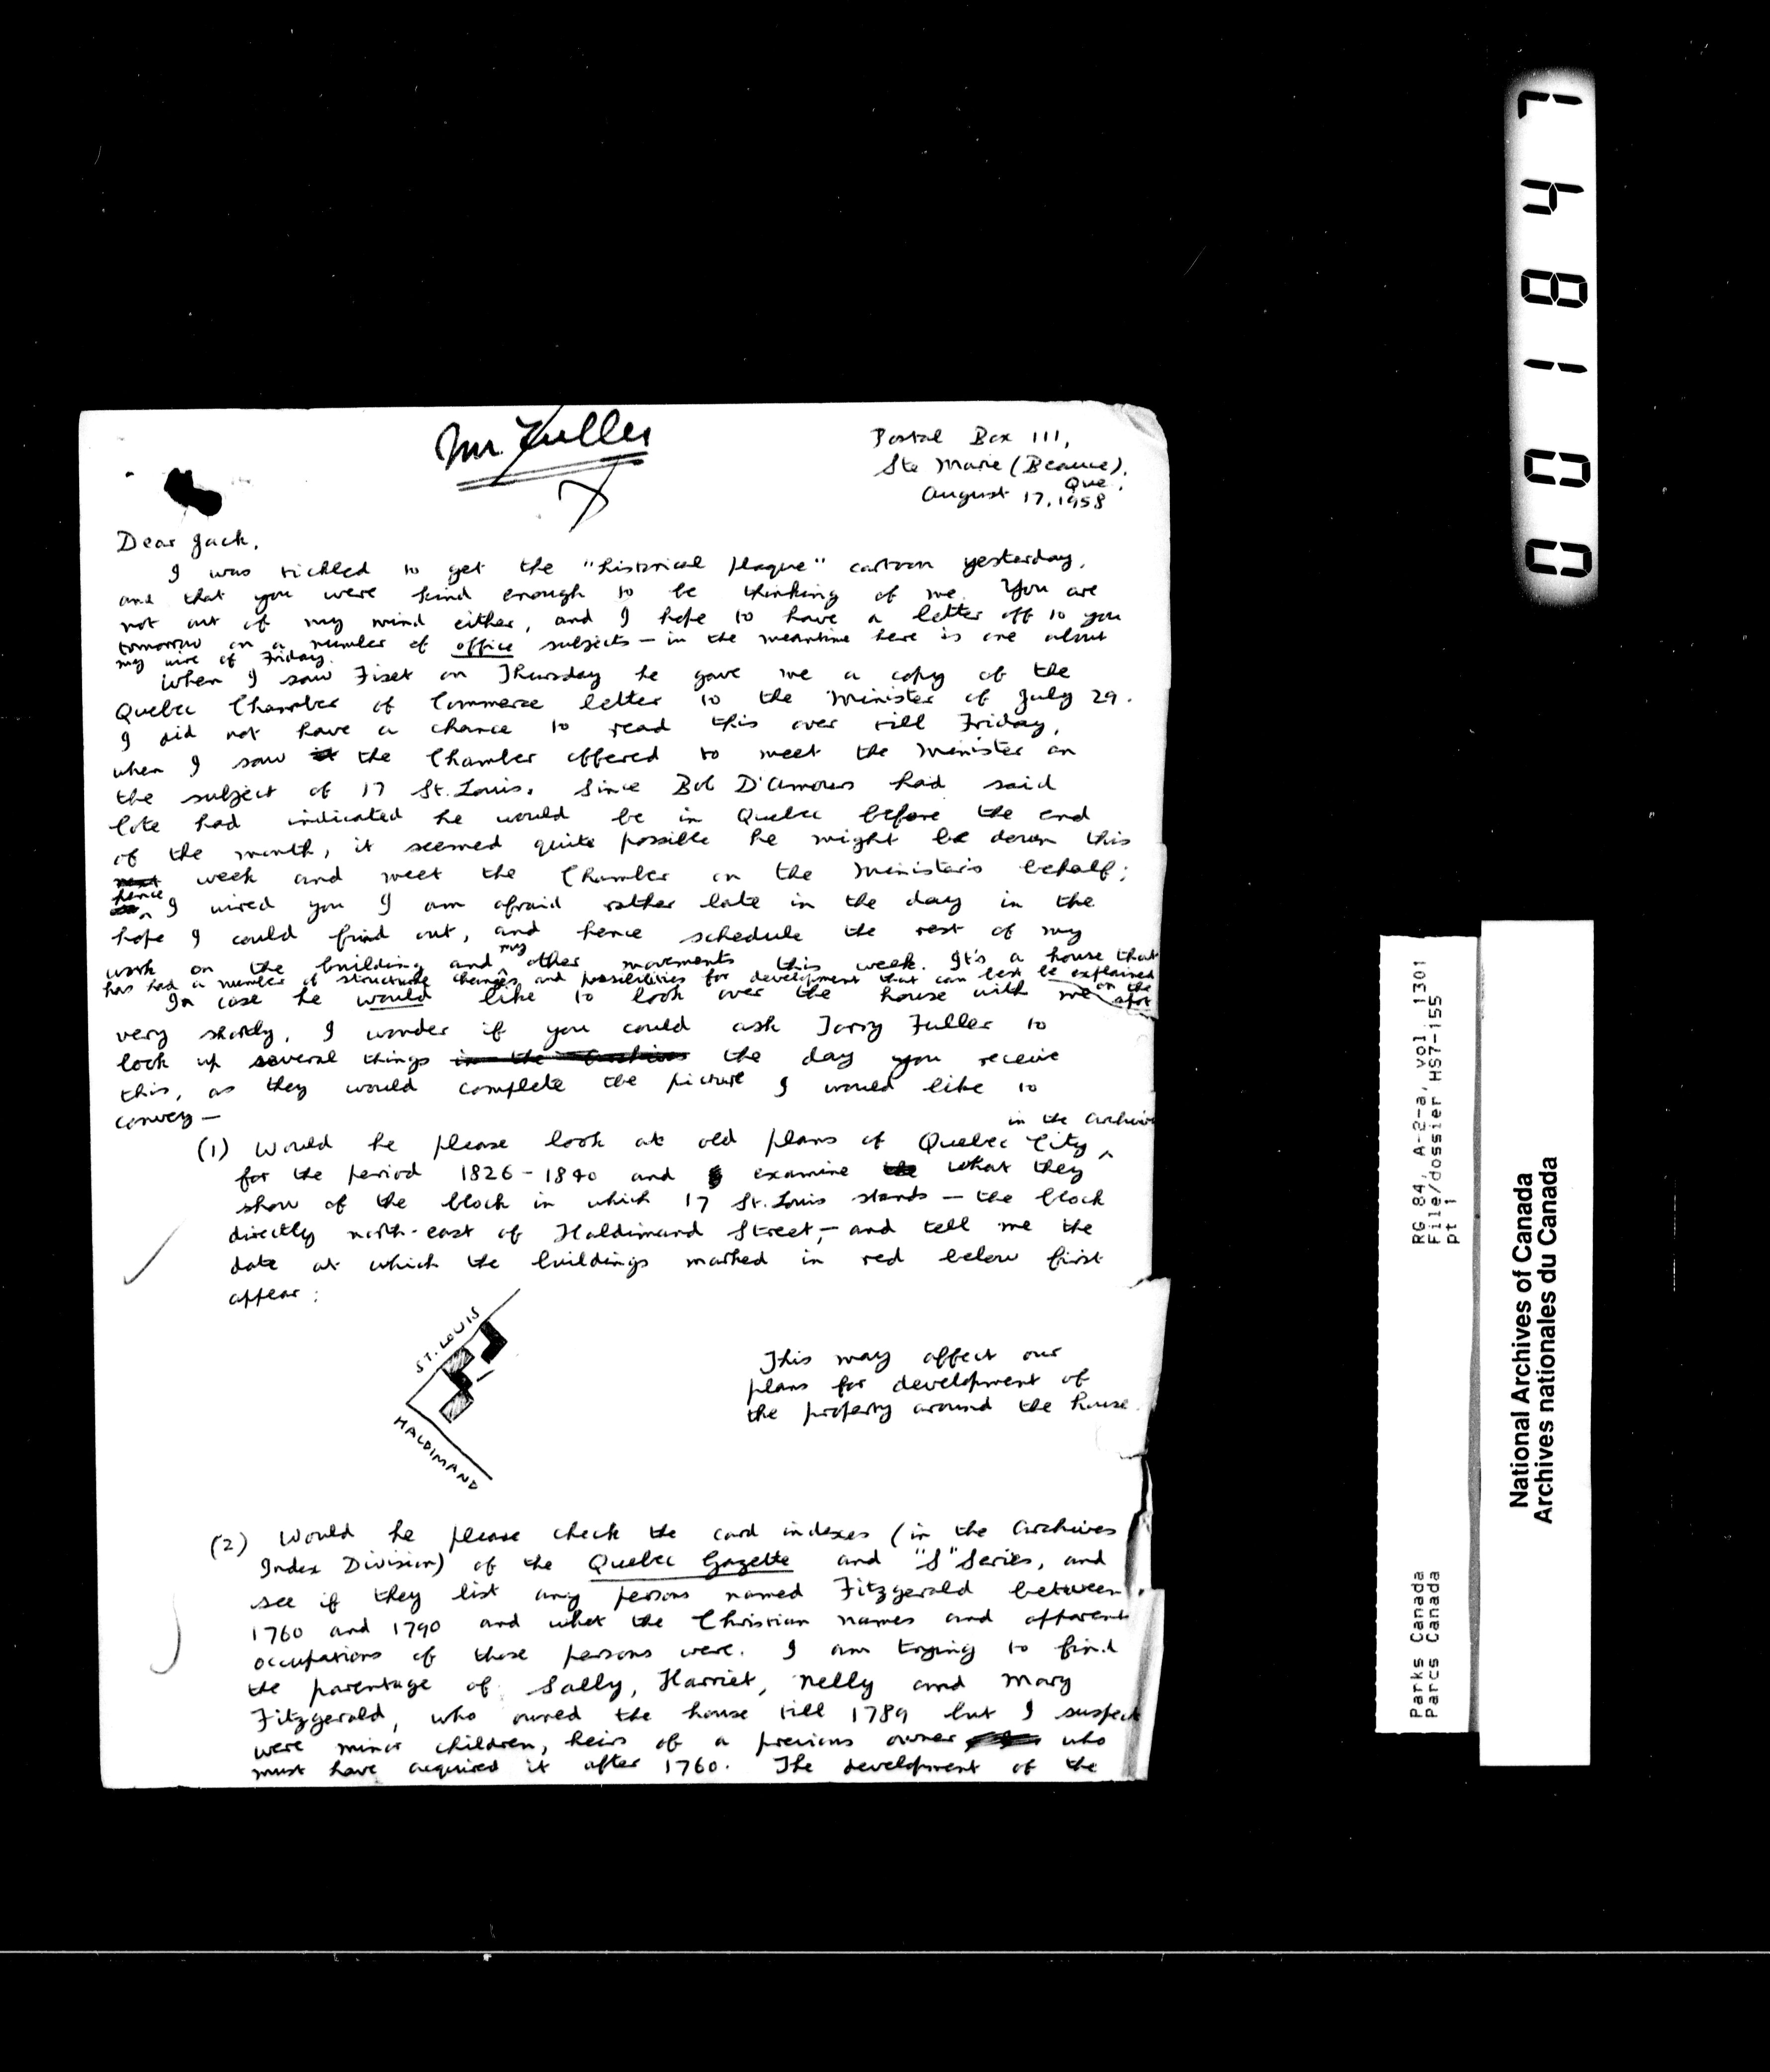 Mr. Fuller
Postal Box 111,
Ste Marie (Beauce),
Que.
August 17, 1958
Dear Jack,
I was tickled to get the "historical plaque" cartoon yesterday,
and that you were kind enough to be thinking of me. You are
not out of my mind either, and I hope to have a letter off to you
tomorrow on a number of office subjects — in the meantime here is one about
my wire of Friday.
When I saw Fiset on Thursday he gave me a copy of the
Quebec Chamber of Commerce letter to the Minister of July 29.
I did not have a chance to read this over till Friday,
when I saw the Chamber offered to meet the Minister on
the subject of 17 St. Louis. Since Bob D'Amours had said
Cote had indicated he would be in Quebec before the end
of the month, it seemed quite possible he might be down this
next week and meet the Chamber on the Minister's behalf;
hence I wired you I am afraid rather late in the day in the
hope I could find out, and hence schedule the rest of my
work on the building and my other movements this week. It's a house that
has had a number of structural changes and possibilities for development that can best be explained
on the spot
In case he would like to look over the house with me
very shortly, I wonder if you could ask Jerry Fuller to
look up several things in the Archives the day you receive
this, as they would complete the picture I would like to
convey —
in the Archives
(1) Would he please look at old plans of Quebec City ^
for the period 1826-1840 and examine the what they
show of the block in which 17 St. Louis stands — the block
directly north-east of Haldimand Street, — and tell me the
date at which the buildings marked in red below first
appear :
ST. LOUIS
HALDIMAND
This may affect our
plans for development of
the property around the house.
(2) Would he please check the card indexes (in the Archives
Index Division) of the Quebec Gazette and "S" Series, and
see if they list any persons named Fitzgerald between
1760 and 1790 and what the Christian names and apparent
occupations of those persons were. I am trying to find
the parentage of Sally, Harriet, Nelly and Mary
Fitzgerald, who owned the house till 1789 but I suspect
were minor children, heirs of a previous owner who
must have acquired it after 1760. The development of the
001847
RG 84, A-2-a, vol 1301
File/dossier HS7-155
pt 1
Parks Canada
Parcs Canada
National Archives of Canada
Archives nationales du Canada